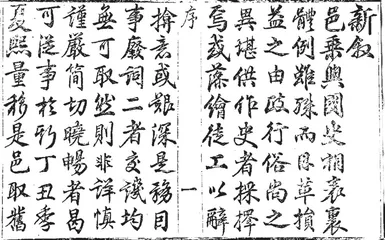 新敘
邑乘與國史相表裏
體例雖殊而因革損
益之由政行俗尚之
異堪供作史者採擇
焉或藻繪徒工以辭
序
一
揜意或艱深是務因
事廢詞二者交譏均
無可取然則非詳慎
謹嚴簡切曉暢者曷
可從事於斯丁丑季
夏熙量移是邑取舊